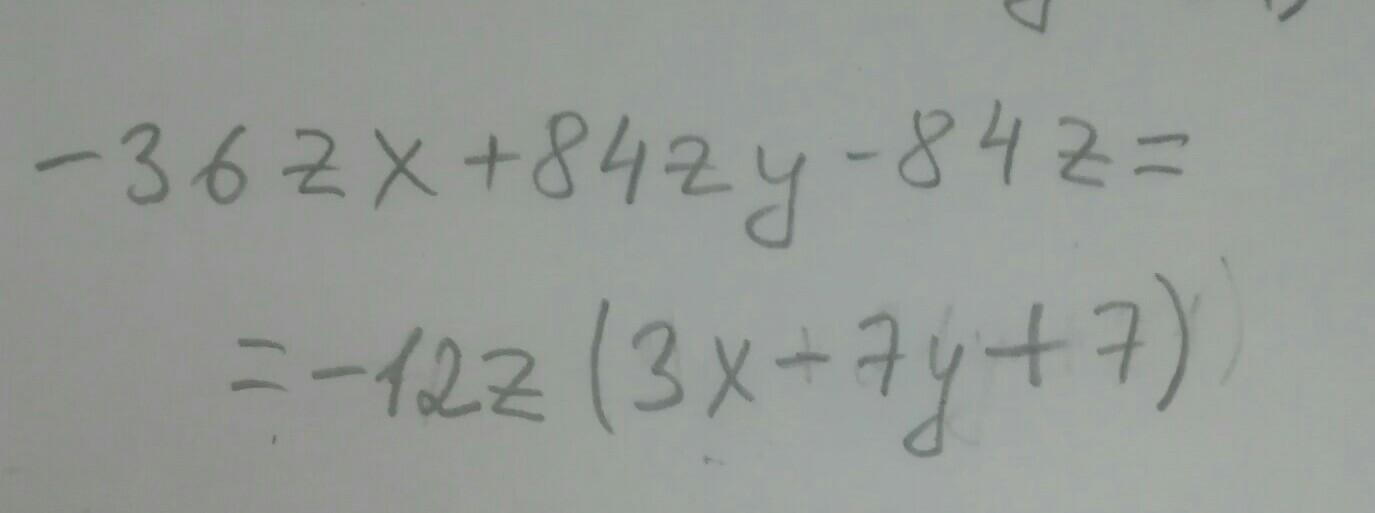 -36zx+84zy-84z=
=-12z(3x-7y+7)